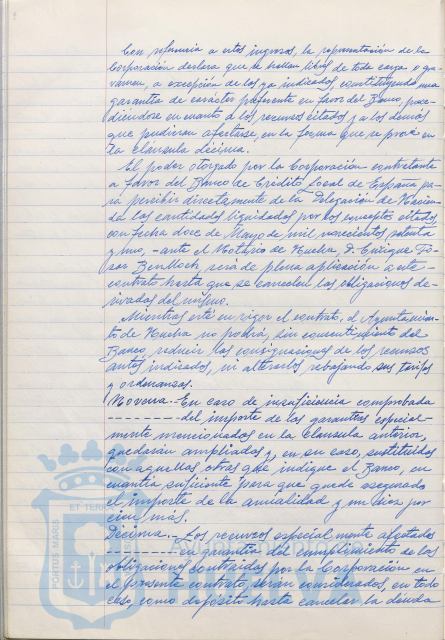 Con referencia a estos ingresos, la representación de la
Corporación declara que se hallan libres de toda carga o gra-
vamen, a excepción de los ya indicados, constituyendo una
garantía de carácter preferente en favor del Banco, proce-
diéndose en cuanto a los recursos citados y a los demás
que pudieran afectarse, en la forma que se prevé en
la cláusula décima.
El poder otorgado por la Corporación contratante
a favor del Banco de Crédito Local de España pa-
ra percibir directamente de la Delegación de Hacien-
da las cantidades liquidadas por los conceptos citados
con fecha doce de Mayo de mil novecientos setenta
y uno, -ante el Notario de Huelva, D. Enrique
Benlloch, será de plena aplicación a este
contrato hasta que se cancelen las obligaciones de-
rivadas del mismo.
Mientras esté en vigor el contrato, el Ayuntamien-
to de Huelva no podrá, sin consentimiento del
Banco, reducir las consignaciones de los recursos
antes indicados, ni alterarlos rebajando sus tarifas
y ordenanzas.
Novena.- En caso de insuficiencia comprobada
del importe de las garantías especial-
mente mencionados en la Cláusula anterior,
quedarán ampliadas y, en su caso, sustituidas
con aquellas otras que indique el Banco, en
cuantía suficiente para que quede asegurado
el importe de la anualidad y un diez por
cien más.
Décima.- Los recursos especialmente afectados
en garantía del cumplimiento de las
obligaciones contraidas por la Corporación en
el presente contrato, serán considerados, en todo
caso, como depósito hasta cancelar la deuda
PORTUS MARIS
ET TERR